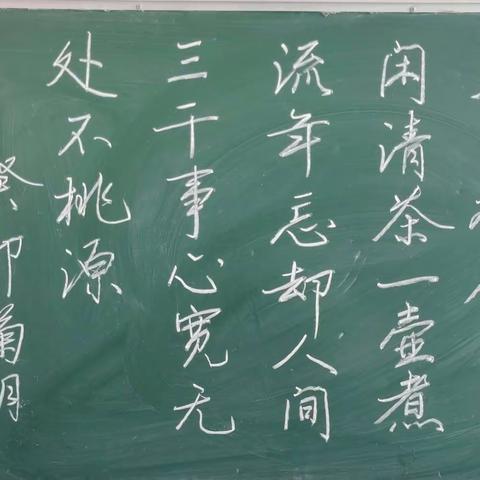 闲清茶一壶煮
流年忘却人间
三千事心宽无
处不桃源
癸卯菊月